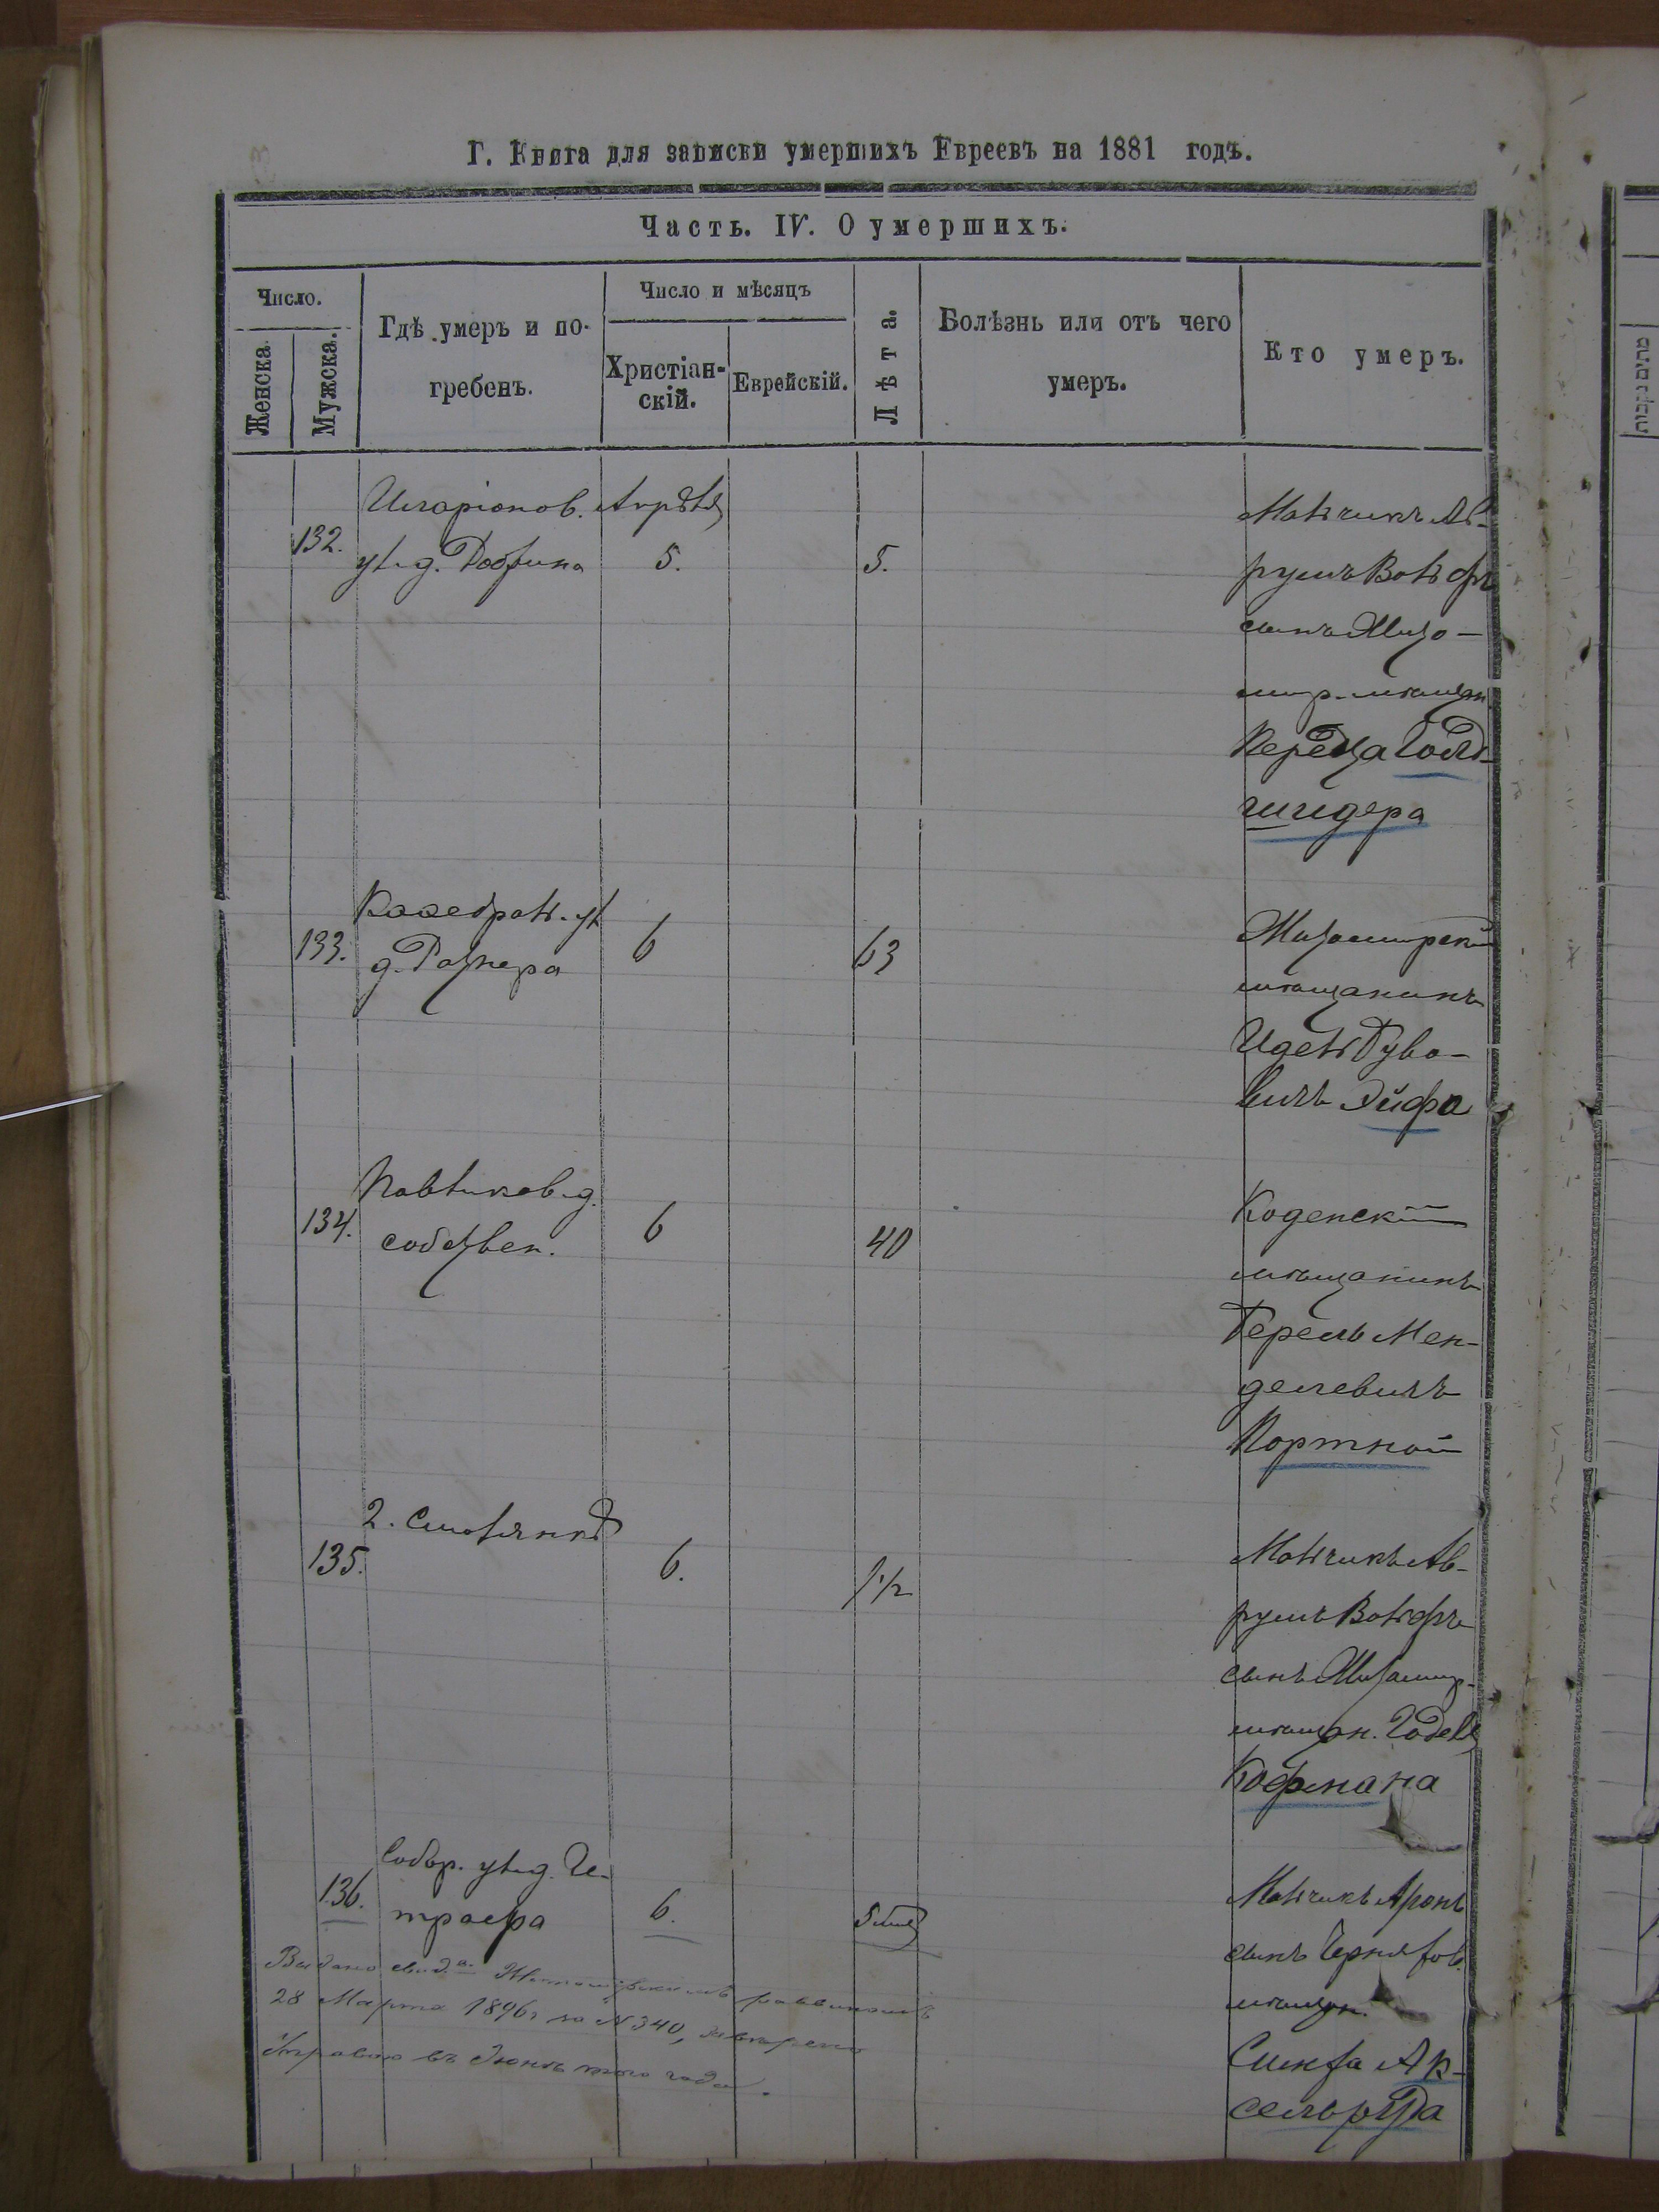 Г. Книга для записки умершихъ Евреевъ на 1881 годъ.
Часть. IV. О умершихъ.
Число.
Женска.
Мужска.
Гдѣ умеръ и по-
гребенъ.
Число и мѣсяцъ
Христіан-
скій.
Еврейскій.
Лѣта.
Болѣзнь или отъ чего
умеръ.
Кто умеръ.
מתים נקבות
132.
Иларіонов.
ул. д.
Апрѣля
5.
5.
Мальчикъ Ав-
румъ Вольфъ
сынъ Жито-
мир. мѣщан.
Переца Гольд-
шидера
133.
Каѳедрал. ул.
д. Познера
6
63
Житомирскій
мѣщанинъ
Идель Дуво-
вичъ Эйфа
134.
д.
собствен.
6
40
Коденскій
мѣщанинъ
Герель Мен-
делевичъ
Портной
135.
2. Смолянкѣ
6.
1 1/2
Мальчикъ Ав-
румъ Вольфъ
сынъ Житомир.
мѣщан. Годеля
Кофмана
136.
Собор. ул. д.
6.
Мальчикъ Аронъ
сынъ Чернихов.
мѣщан.
Ак-
сельрода
Выдано свид. Житомірскимъ раввиномъ
28 Марта 1896 г за № 340,
Управою въ Іюнѣ того года.